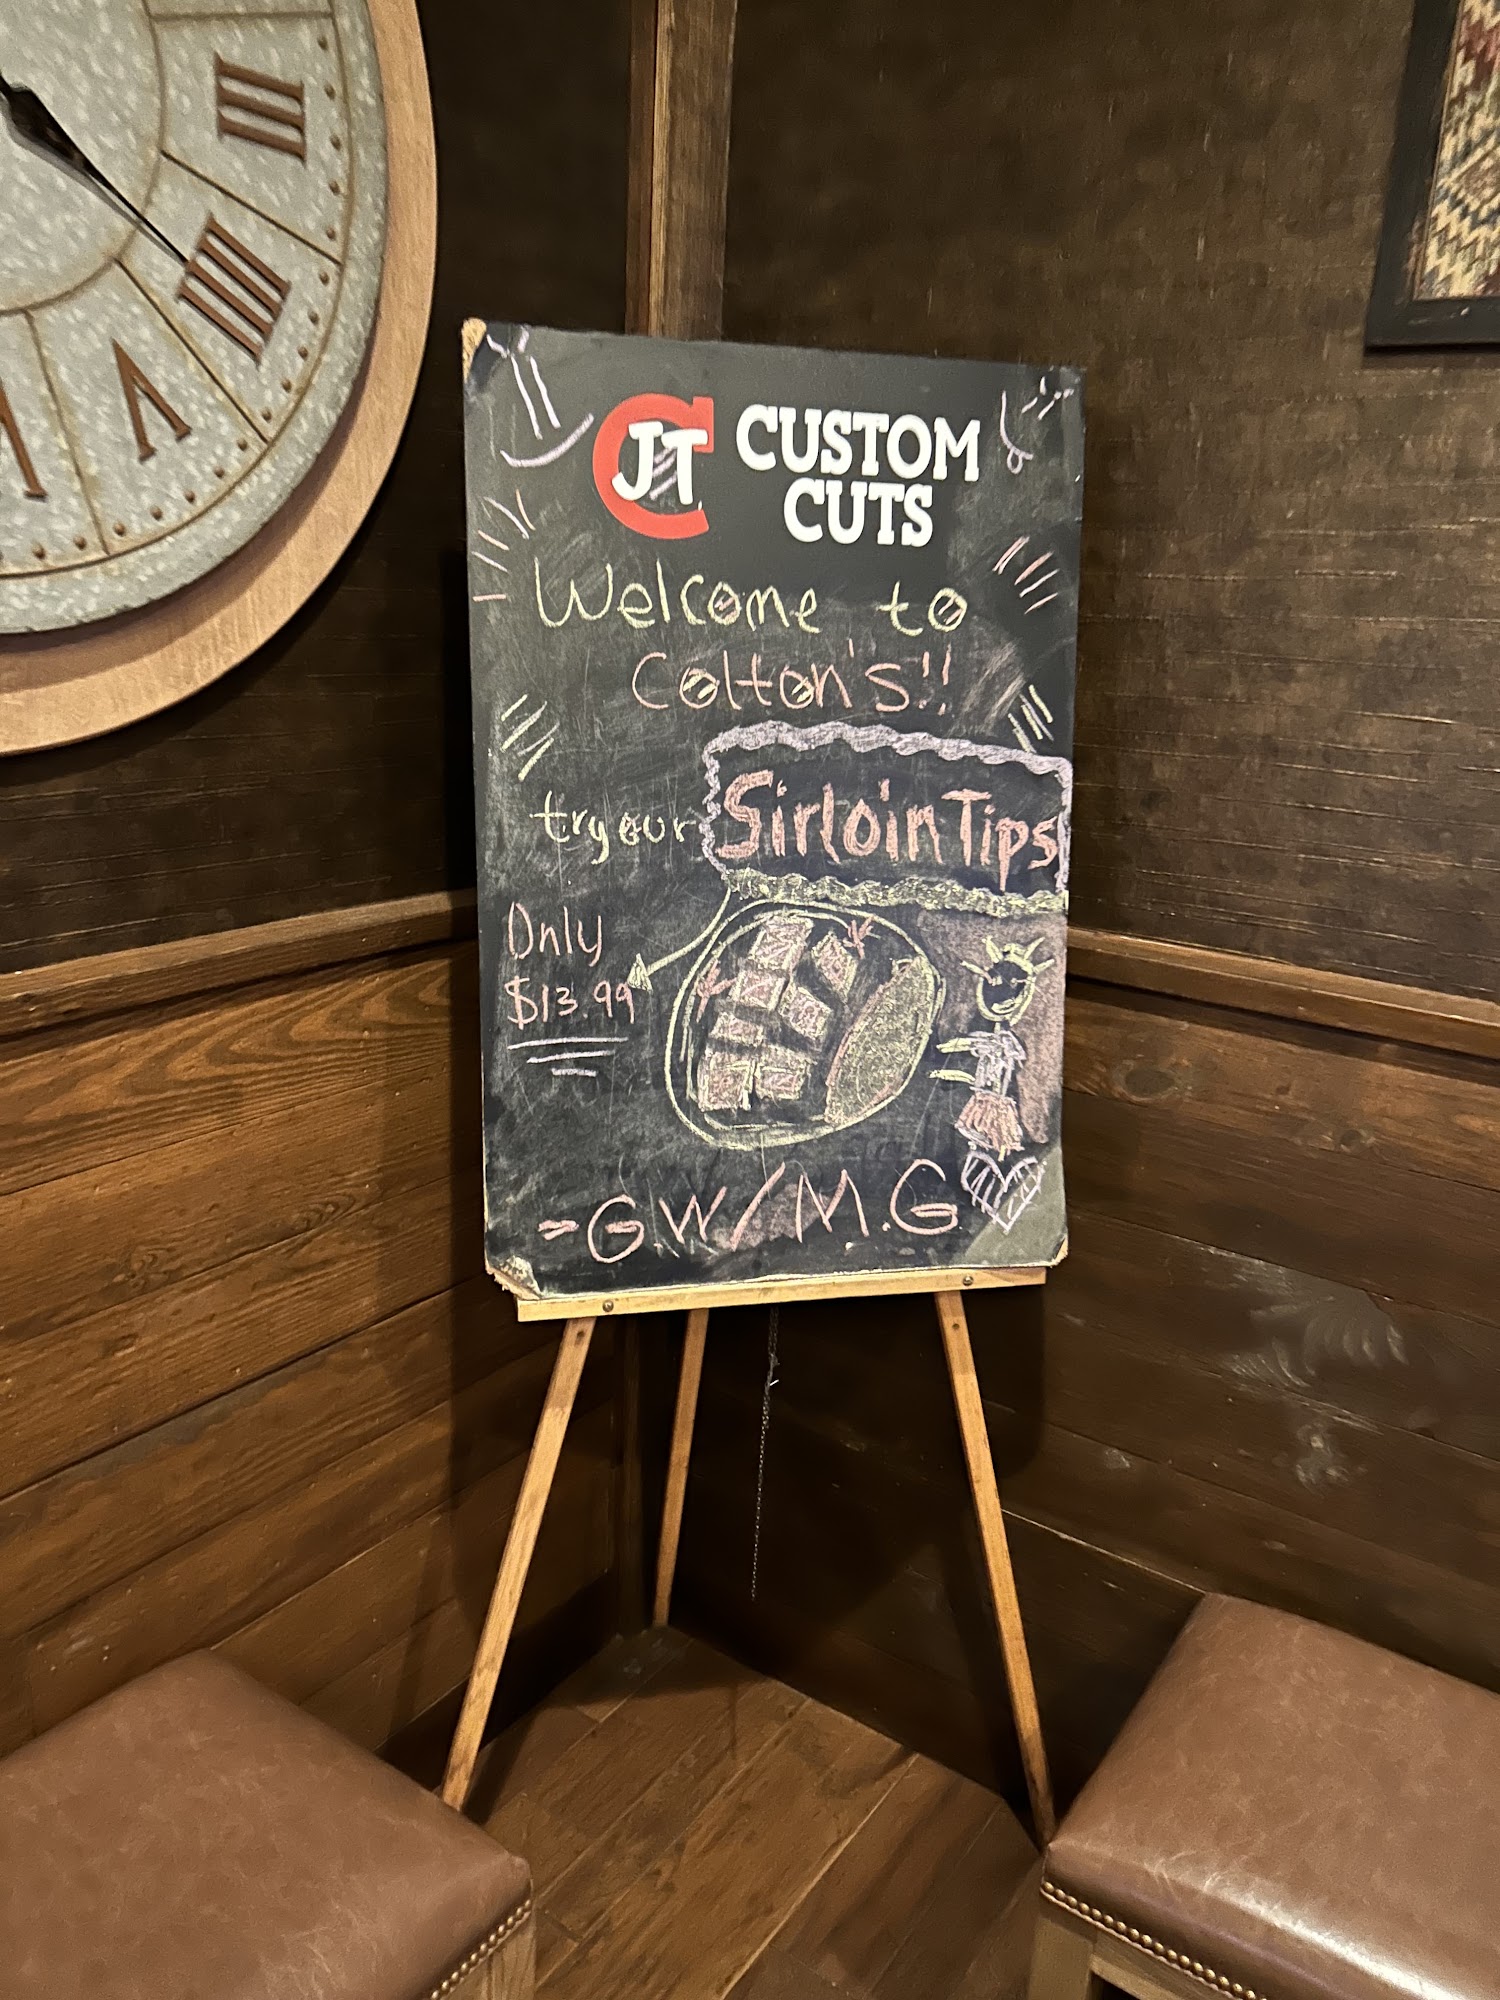 III
IIII
V
JTC
CUSTOM
CUTS
Welcome to
Colton's!!
try our Sirloin Tips
Only
$13.99
-G.W/M.G